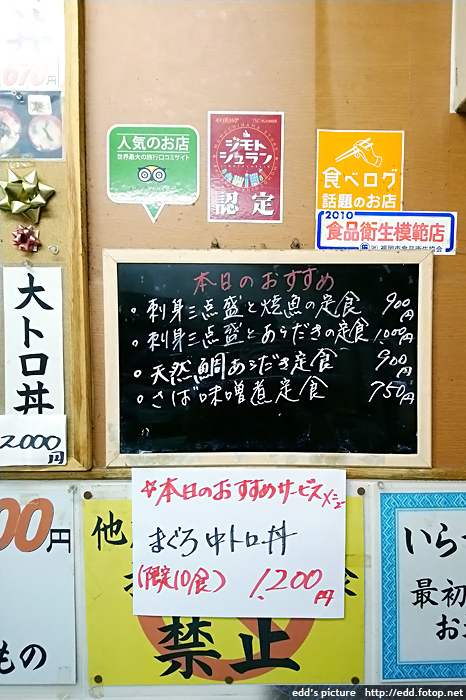 670円
人気のお店
世界最大の旅行口コミサイト
ジモト
シュラン
認定
食べログ
話題のお店
2010
食品衛生模範店
福岡市食品衛生協会
大トロ丼
2000円
本日のおすすめ
○刺身三点盛と焼魚の定食 900円
○刺身三点盛とあらだきの定食 1,000円
○天然鯛あらだき定食 900円
○さば味噌煮定食 750円
☆本日のおすすめサービスメニュー
まぐろ中トロ丼
(限定10食) 1,200円
00円
もの
他
禁止
いら
最初
お
edd's picture http://edd.fotop.net